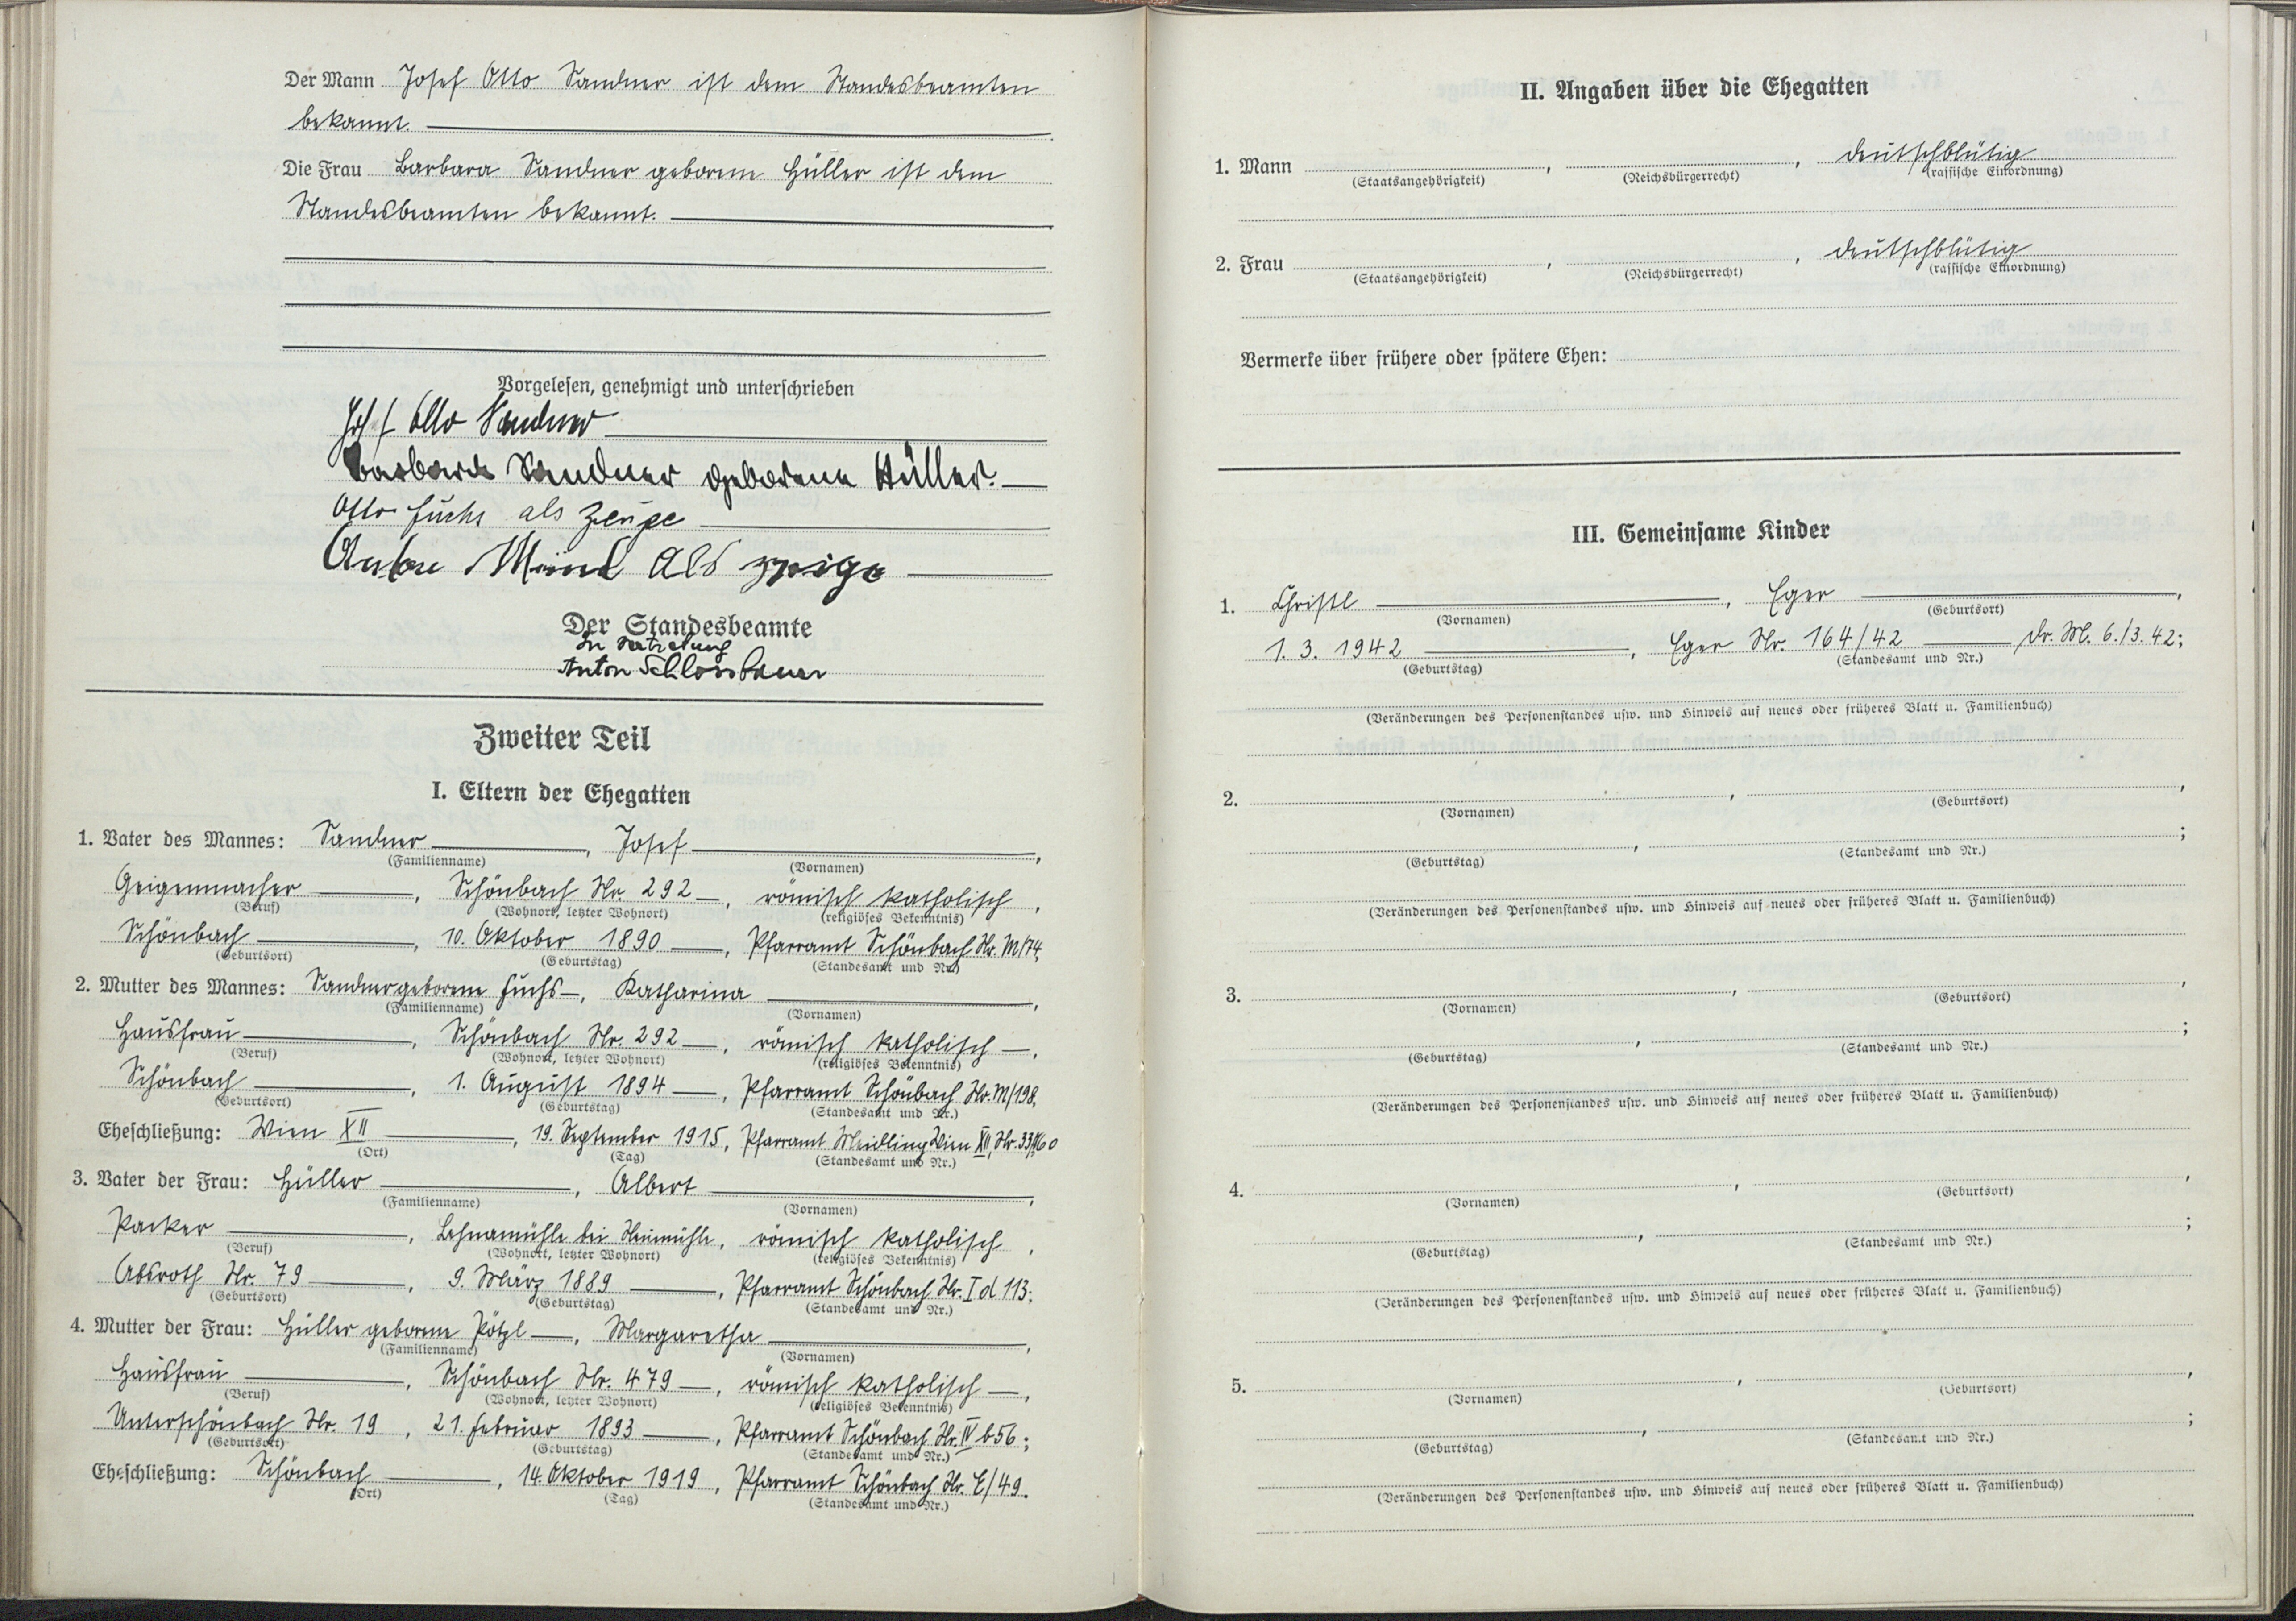 Der Mann Josef Otto Sandner ist dem Standesbeamten
bekannt.
Die Frau Barbara Sandner geborene Hüller ist dem
Standesbeamten bekannt.
Vorgelesen, genehmigt und unterschrieben
Josef Otto Sandner
Barbara Sandner geborene Hüller.
Otto Fuchs als Zeuge
als Zeuge
Der Standesbeamte
In Vertretung
Anton Schlossbauer
Zweiter Teil
I. Eltern der Ehegatten
1. Vater des Mannes: Sandner, Josef,
(Familienname) (Vornamen)
Geigenmacher, Schönbach Nr. 292, römisch katholisch,
(Beruf) (Wohnort, letzter Wohnort) (religiöses Bekenntnis)
Schönbach, 10. Oktober 1890, Pfarramt Schönbach Nr. M/74;
(Geburtsort) (Geburtstag) (Standesamt und Nr.)
2. Mutter des Mannes: Sandner geborene Fuchs, Katharina,
(Familienname) (Vornamen)
Hausfrau, Schönbach Nr. 292, römisch katholisch,
(Beruf) (Wohnort, letzter Wohnort) (religiöses Bekenntnis)
Schönbach, 1. August 1894, Pfarramt Schönbach Nr. M/198,
(Geburtsort) (Geburtstag) (Standesamt und Nr.)
Eheschließung: Wien XII, 19. September 1915, Pfarramt Meidling Wien XII, Nr.
(Ort) (Tag) (Standesamt und Nr.)
3. Vater der Frau: Hüller, Albert,
(Familienname) (Vornamen)
Packer, bei, römisch katholisch,
(Beruf) (Wohnort, letzter Wohnort) (religiöses Bekenntnis)
Absroth Nr. 79, 9. März 1889, Pfarramt Schönbach Nr. I d 113;
(Geburtsort) (Geburtstag) (Standesamt und Nr.)
4. Mutter der Frau: Hüller geborene Pötzl, Margaretha,
(Familienname) (Vornamen)
Hausfrau, Schönbach Nr. 479, römisch katholisch,
(Beruf) (Wohnort, letzter Wohnort) (religiöses Bekenntnis)
Unterschönbach Nr. 19, 21. Februar 1893, Pfarramt Schönbach Nr. IV b56;
(Geburtsort) (Geburtstag) (Standesamt und Nr.)
Eheschließung: Schönbach, 14. Oktober 1919, Pfarramt Schönbach Nr. E/49.
(Ort) (Tag) (Standesamt und Nr.)
II. Angaben über die Ehegatten
1. Mann, , deutschblütig
(Staatsangehörigkeit) (Reichsbürgerrecht) (rassische Einordnung)
2. Frau, , deutschblütig
(Staatsangehörigkeit) (Reichsbürgerrecht) (rassische Einordnung)
Vermerke über frühere oder spätere Ehen:
III. Gemeinsame Kinder
1. Christl, Eger,
(Vornamen) (Geburtsort)
1. 3. 1942, Eger Nr. 164/42 6./3. 42;
(Geburtstag) (Standesamt und Nr.)
(Veränderungen des Personenstandes usw. und Hinweis auf neues oder früheres Blatt u. Familienbuch)
2. , ,
(Vornamen) (Geburtsort)
, ;
(Geburtstag) (Standesamt und Nr.)
(Veränderungen des Personenstandes usw. und Hinweis auf neues oder früheres Blatt u. Familienbuch)
3. , ,
(Vornamen) (Geburtsort)
, ;
(Geburtstag) (Standesamt und Nr.)
(Veränderungen des Personenstandes usw. und Hinweis auf neues oder früheres Blatt u. Familienbuch)
4. , ,
(Vornamen) (Geburtsort)
, ;
(Geburtstag) (Standesamt und Nr.)
(Veränderungen des Personenstandes usw. und Hinweis auf neues oder früheres Blatt u. Familienbuch)
5. , ,
(Vornamen) (Geburtsort)
, ;
(Geburtstag) (Standesamt und Nr.)
(Veränderungen des Personenstandes usw. und Hinweis auf neues oder früheres Blatt u. Familienbuch)